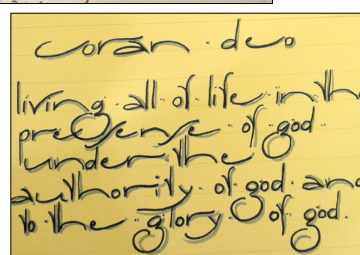 coran · deo
living · all · of · life · in · th
presense · of · god
under · the
authority · of · god · and
to · the · glory · of · god ·